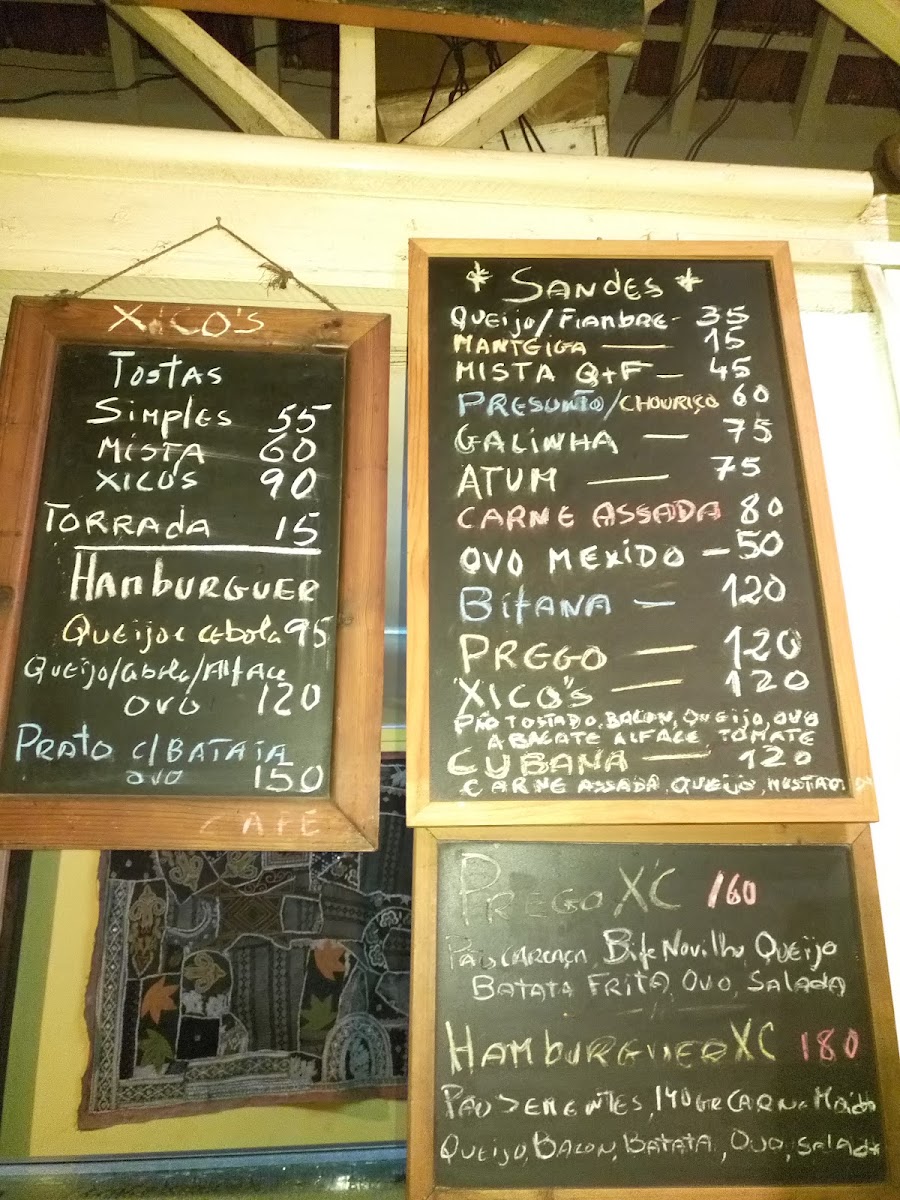 XICO'S
TOSTAS
SIMPLES 55
MISTA 60
XICO'S 90
TORRADA 15
HAMBURGUER
QUEIJO E CEBOLA 95
QUEIJO/CEBOLA/ALFACE
OVO 120
PRATO C/BATATA
OVO 150
CAFÉ
* SANDES *
QUEIJO/FIAMBRE - 35
MANTEIGA — 15
MISTA Q+F — 45
PRESUNTO/CHOURIÇO 60
GALINHA — 75
ATUM — 75
CARNE ASSADA 80
OVO MEXIDO — 50
BIFANA — 120
PREGO — 120
XICO'S — 120
PÃO TOSTADO, BACON, QUEIJO, OVO
ABACATE ALFACE, TOMATE
CUBANA — 120
CARNE ASSADA, QUEIJO, MOSTARDA
PREGO XC 160
PÃO CARCAÇA, Bife Novilho, QUEIJO
BATATA FRITA, OVO, SALADA
HAMBURGUER XC 180
PÃO SEMENTES, 140GR CARNE MOIDA
QUEIJO, BACON, BATATA, OVO, SALADA